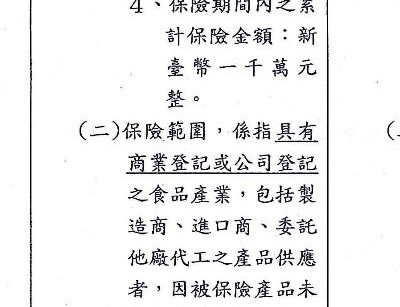 4、保險期間內之累
計保險金額：新
臺幣一千萬元
整。
(二)保險範圍，係指具有
商業登記或公司登記
之食品產業，包括製
造商、進口商、委託
他廠代工之產品供應
者，因被保險產品未
(